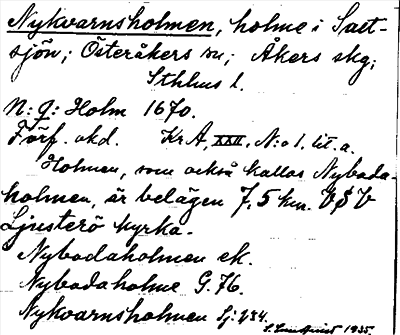 Nykvarnsholmen, holme i Salt-
sjön; Österåkers sn; Åkers skg;
Sthlms l.
N: q: Holm 1670.
Förf. okd. Kr A, XXII, N:o 1, lit. a.
Holmen, som också kallas Nyboda-
holmen, är belägen 7,5 km. V
Ljusterö kyrka.
Nybodaholmen ek.
Nybodaholme G. 76.
Nykvarnsholmen Sj: 234.
1935.